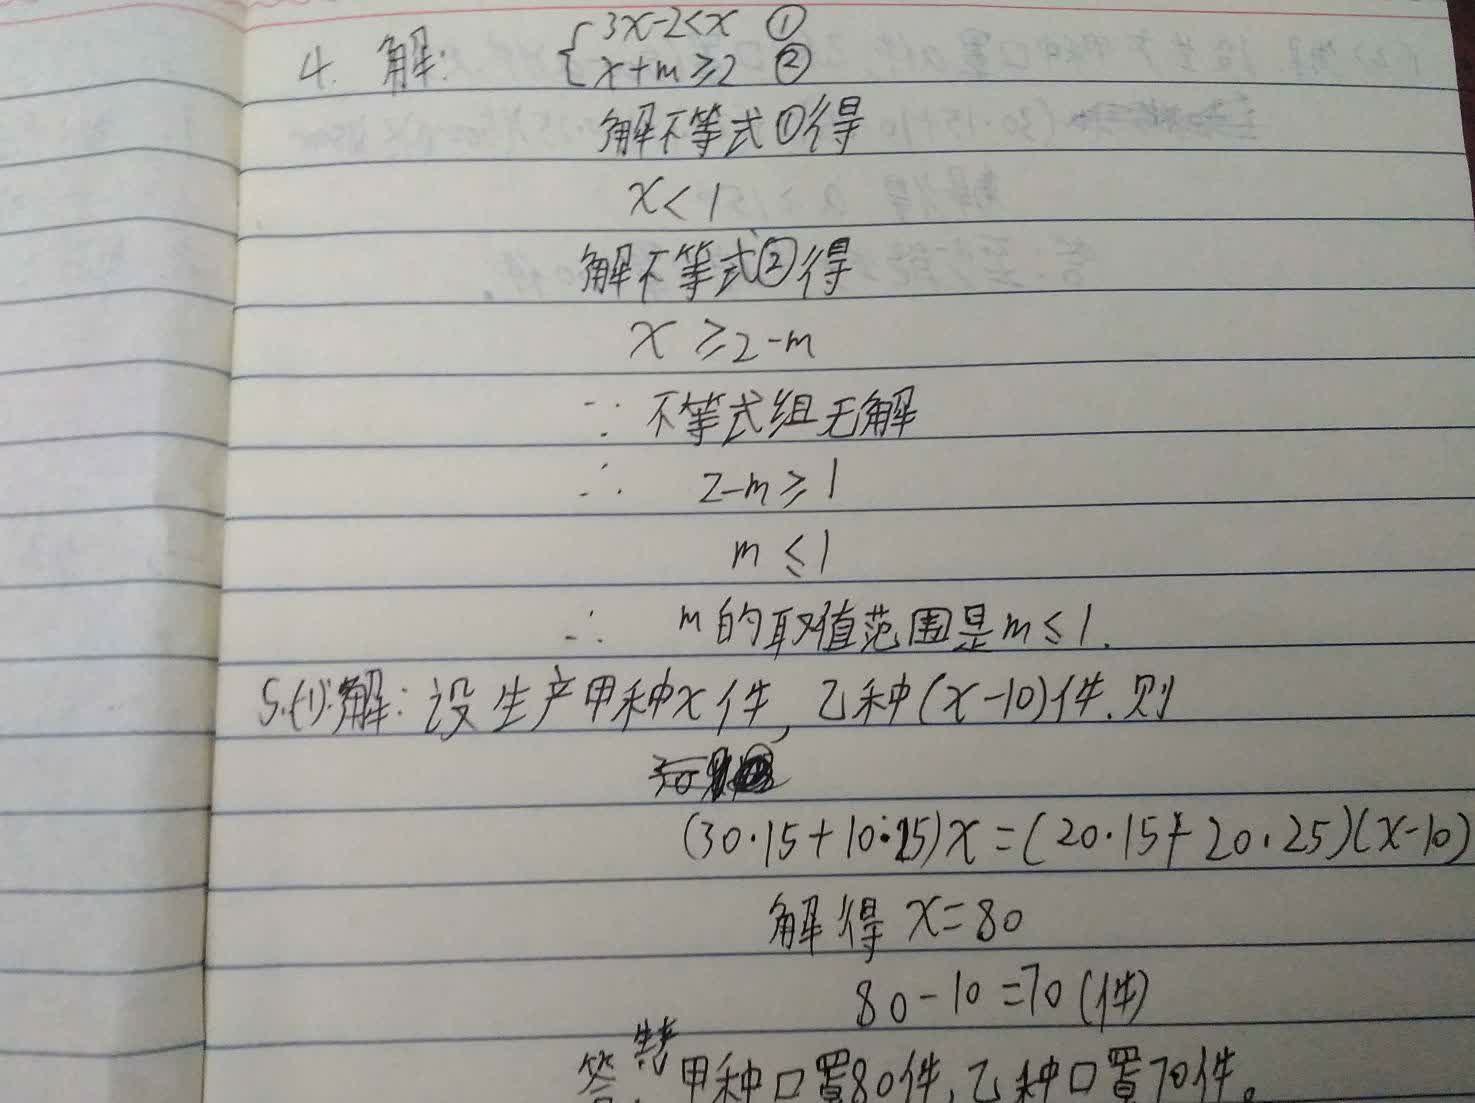 4. 解: {3x-2<x ①
x+m≥2 ②
解不等式①得
x<1
解不等式②得
x≥2-m
∵ 不等式组无解
∴ 2-m≥1
m≤1
∴ m的取值范围是m≤1.
5.(1):解:设生产甲种x件,乙种(x-10)件.则
(30·15+10·25)x=(20·15+20·25)(x-10)
解得x=80
80-10=70(件)
答:甲种口罩80件,乙种口罩70件。